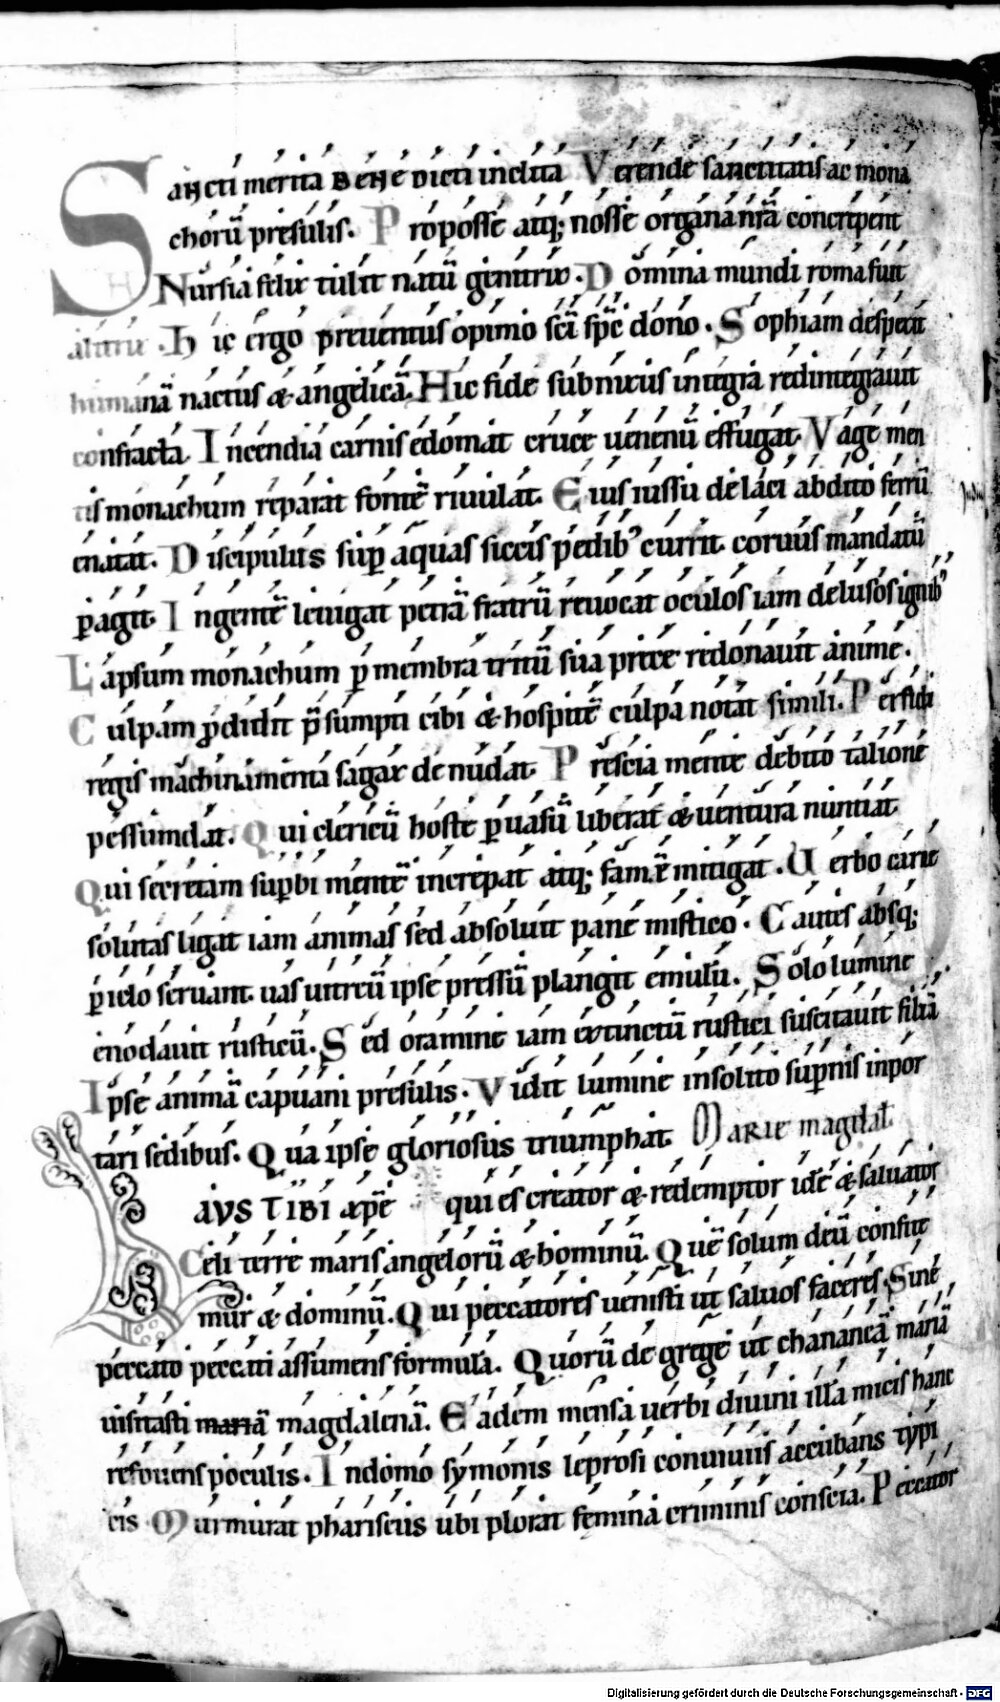 Sancti merita BENEDICTI inclita Verende sanctitatis ac mona
chorū presulis. Proposse atq; nosse organa nr̄a concrepent
Nursia felix tulit natū genitrix. Domina mundi roma fuit
altrix. Hic ergo preuentus opimo sc̄i sp̄c dono. Sophiam despexit
humanā nactus & angelicā. Hic fide subnixus integra redintegrauit
confracta. Incendia carnis edomat cruce uenenū effugat. Vage men
tis monachum reparat fontē riuulat. Eius iussu de laci abdito ferrū
enatat. Discipulus sup̄ aquas siccis pedib' currit. coruus mandatū
p̄agit. Ingentē leuigat petrā fratrū reuocat oculos iam delusos ignib'
Lapsum monachum p̄ membra tritū sua prece redonauit anime.
Culpam p̄didit p̄sumpti cibi & hospitē culpa notat simili. Perfidi
regis machinamenta sagax denudat. Prescia mente debito talione
pessumdat. Qui clericū hoste p̄uasū liberat & uentura nuntiat
Qui secretam sup̄bi mentē increpat atq; famē mitigat. Uerbo carne
solutas ligat iam animas sed absoluit pane mistico. Cautes absq;
p̄iclo seruant uas uitreū ipse pressū plangit emulū. Solo lumine
enodauit rusticū. Sed oramine iam extinctū rustici suscitauit filiū
Ipse animā capuani presulis. Vidit lumine insolito sup̄nis inpor
tari sedibus. Qua ipse gloriosus triumphat. MARIE magdal.
LAVS TIBI xp̄e qui es creator & redemptor idē & saluator
Celi terre maris angelorū & hominū. Quē solum deū confite
mur & dominū. Qui peccatores uenisti ut saluos faceres. Sine
peccato peccati assumens formulā. Quorū de grege ut chananeā mariā
uisitasti mariā magdalenā. Eadem mensa uerbi diuini illā micis hanc
refouens poculis. In domo symonis leprosi conuiuiis accubans typi
cis Murmurat phariseus ubi plorat femina criminis conscia. Peccator
Digitalisierung gefördert durch die Deutsche Forschungsgemeinschaft - DFG